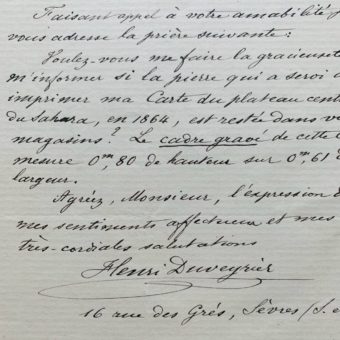 Faisant appel à votre amabilité j
vous adresse la prière suivante:
Voulez-vous me faire la gracieuseté
m'informer si la pierre qui a servi à
imprimer ma Carte du plateau cent
du Sahara, en 1864, est restée dans vo
magasins? Le cadre gravé de cette c
mesure 0m,80 de hauteur sur 0m,61 d
largeur.
Agréez, Monsieur, l'expression d
mes sentiments affectueux et mes
très-cordiales salutations
Henri Duveyrier
16 rue des Grés, Sèvres (S. e